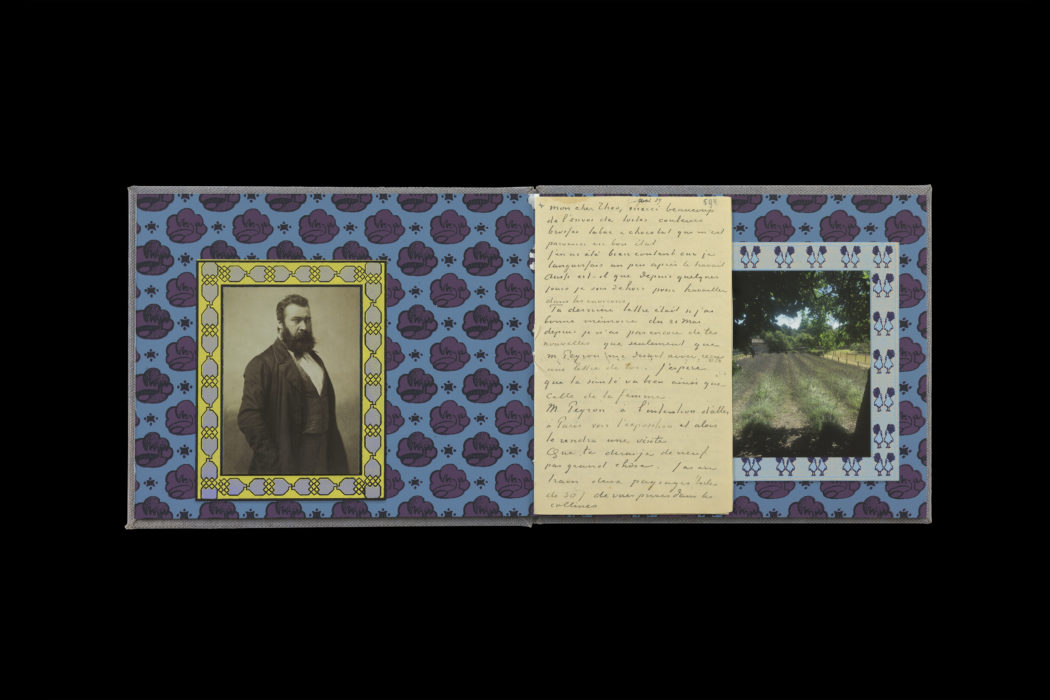 594
mon cher Theo, merci beaucoup
de l'envoi de toiles couleurs
brosses tabac & chocolat qui m'est
parvenu en bon état
J'en ai été bien content car je
languissais un peu après le travail
Aussi est-il que depuis quelques
jours je sors dehors pour travailler
dans les environs.
Ta dernière lettre était si j'ai
bonne mémoire du 21 Mai
depuis je n'ai pas encore de tes
nouvelles que seulement que
M Peyron me disait avoir reçu
une lettre de toi. J'espère
que ta santé va bien ainsi que
celle de ta femme.
M. Peyron a l'intention d'aller
à Paris voir l'exposition et alors
te rendra une visite
Que te dirai-je de neuf
pas grand chôse. J'ai en
train deux paysages (toiles
de 30) de vues prises dans les
collines